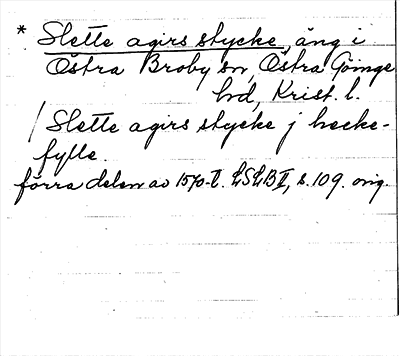 * Slette agirs stycke, äng i
Östra Broby sn, Östra Göinge
hd, Krist. l.
/ Slette agirs stycke j hecke-
fylle.
förra delen av 1570-t. LSLB II, s. 109. orig.